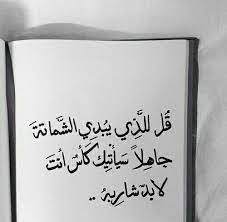 قُل للَّذِي يُبدِي الشَّمَاتةَ
جاهِلاً سَيأتِيكَ كَأسٌ أنتَ
لابدّ شاربهُ ..